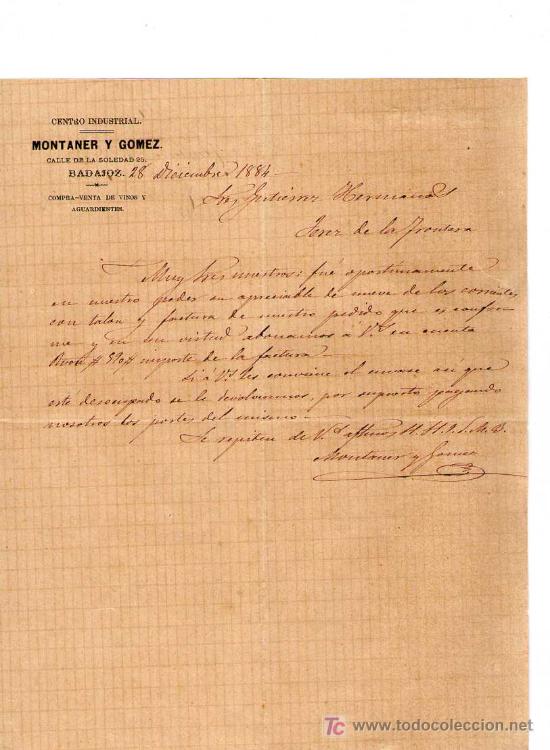 CENTRO INDUSTRIAL.
MONTANER Y GOMEZ.
CALLE DE LA SOLEDAD 25.
BADAJOZ. 28 Diciembre 1884
COMPRA-VENTA DE VINOS Y
AGUARDIENTES.
Gutierrez Hermanos
Jerez de la Frontera
Muy Sres nuestros: fué oportunamente
en nuestro poder su apreciable de nueve de los corrientes,
con talon y factura de nuestro pedido que es confor
me y en su virtud abonamos á Vs en cuenta
importe de la factura.
Si á Vs les conviene el envase asi que
este desocupado se le devolveremos, por supuesto pagando
nosotros los portes del mismo.
Se repiten de Vs affmos S.S.Q.S.M.B.
Montaner y Gomez
TC www.todocoleccion.net